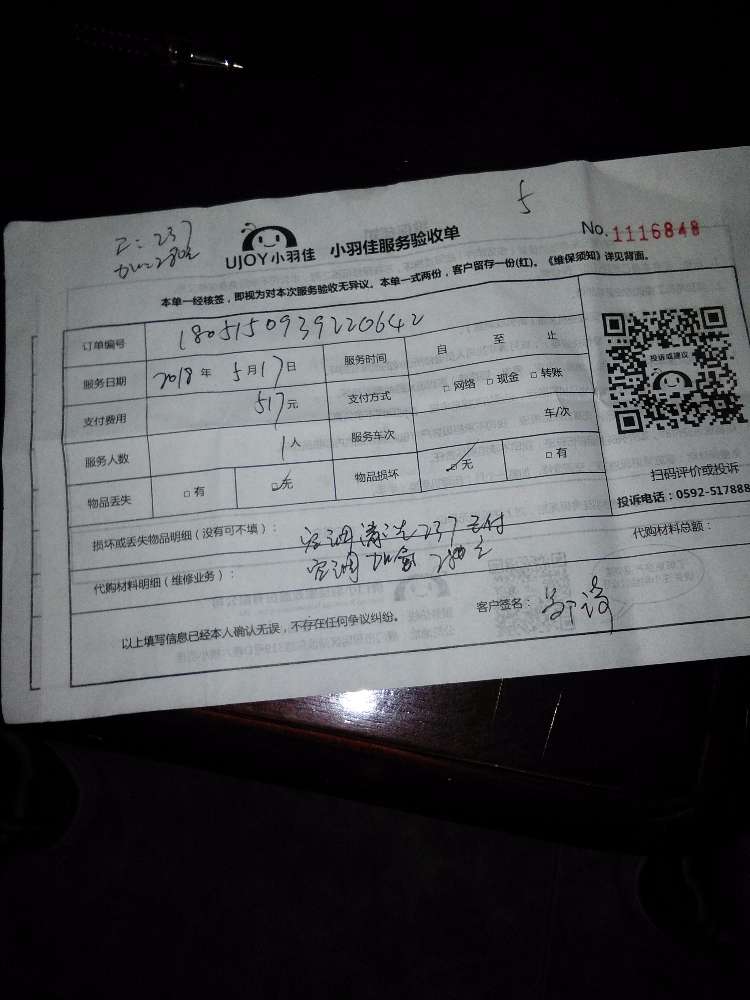 5
工：237
加：280元
UJOY小羽佳 小羽佳服务验收单
No.1116848
本单一经核签，即视为对本次服务验收无异议。本单一式两份，客户留存一份(红)。《维保须知》详见背面。
订单编号 1805150939220642
服务日期 2018年 5月17日 服务时间 自 至 止
支付费用 517元 支付方式 □网络 □现金 □转账
服务人数 1人 服务车次 车/次
物品丢失 □有 □无 物品损坏 □无 □有
投诉或建议
扫码评价或投诉
投诉电话：0592-517888
损坏或丢失物品明细（没有可不填）：
空调清洗237已付
代购材料明细（维修业务）： 空调加氟280元
代购材料总额：
以上填写信息已经本人确认无误，不存在任何争议纠纷。
客户签名：